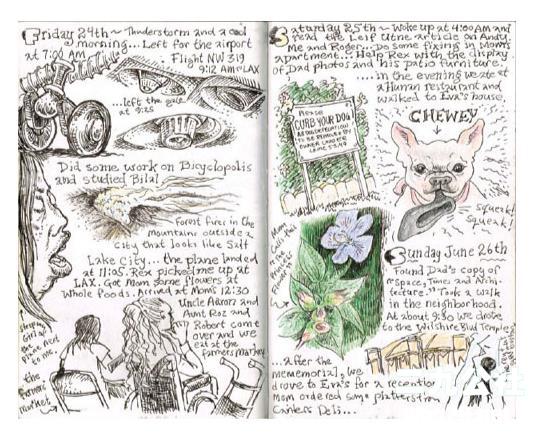 Friday 24th ~ Thunderstorm and a cool
morning... Left for the airport
at 7:00 AM
Flight NW 319
9:12 AM LAX
...left the gate
at 9:25
Did some work on Bicyclopolis
and studied Bilal
Forest fires in the
mountains outside a
city that looks like Salt
Lake City... the plane landed
at 11:05. Rex picked me up at
LAX. Got Mom some flowers at
Whole Foods. Arrived at Mom's 12:30
Uncle Aaron and
Aunt Roz and
Robert came
over and we
eat at the
farmers Market
Sleeping
Girl at
the
next
to me.
the
farmers
market
Saturday 25th ~ Woke up at 4:00 AM and
read the Leif Utne article on Andy,
Me and Roger... Do some fixing in Mom's
apartment... Help Rex with the display
of Dad photos and his patio furniture.
....in the evening we ate at
a Human restaurant and
walked to Eva's house.
Please
CURB YOUR DOG
CHEWEY
Squeak!
Squeak!
Mom
Calls this
the
Flower
Sunday June 26th
Found Dad's copy of
"Space, Time and Archi-
tecture." Took a walk
in the neighborhood.
At about 9:30 we drove
to the Wilshire Blvd Temple
...After the
mememorial, we
drove to Eva's for a reception
Mom ordered some platters from
Canters Deli...